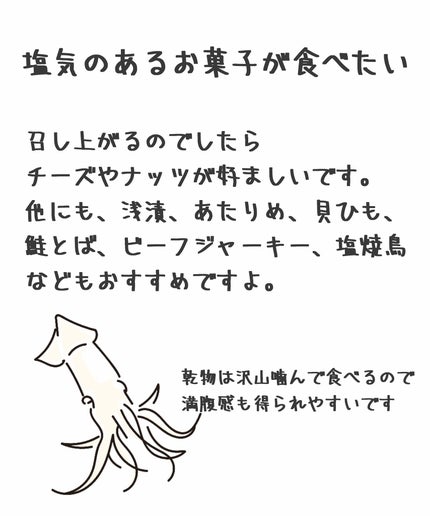 塩気のあるお菓子が食べたい
召し上がるのでしたら
チーズやナッツが好ましいです。
他にも、浅漬、あたりめ、貝ひも、
鮭とば、ビーフジャーキー、塩焼鳥
などもおすすめですよ。
乾物は沢山噛んで食べるので
満腹感も得られやすいです